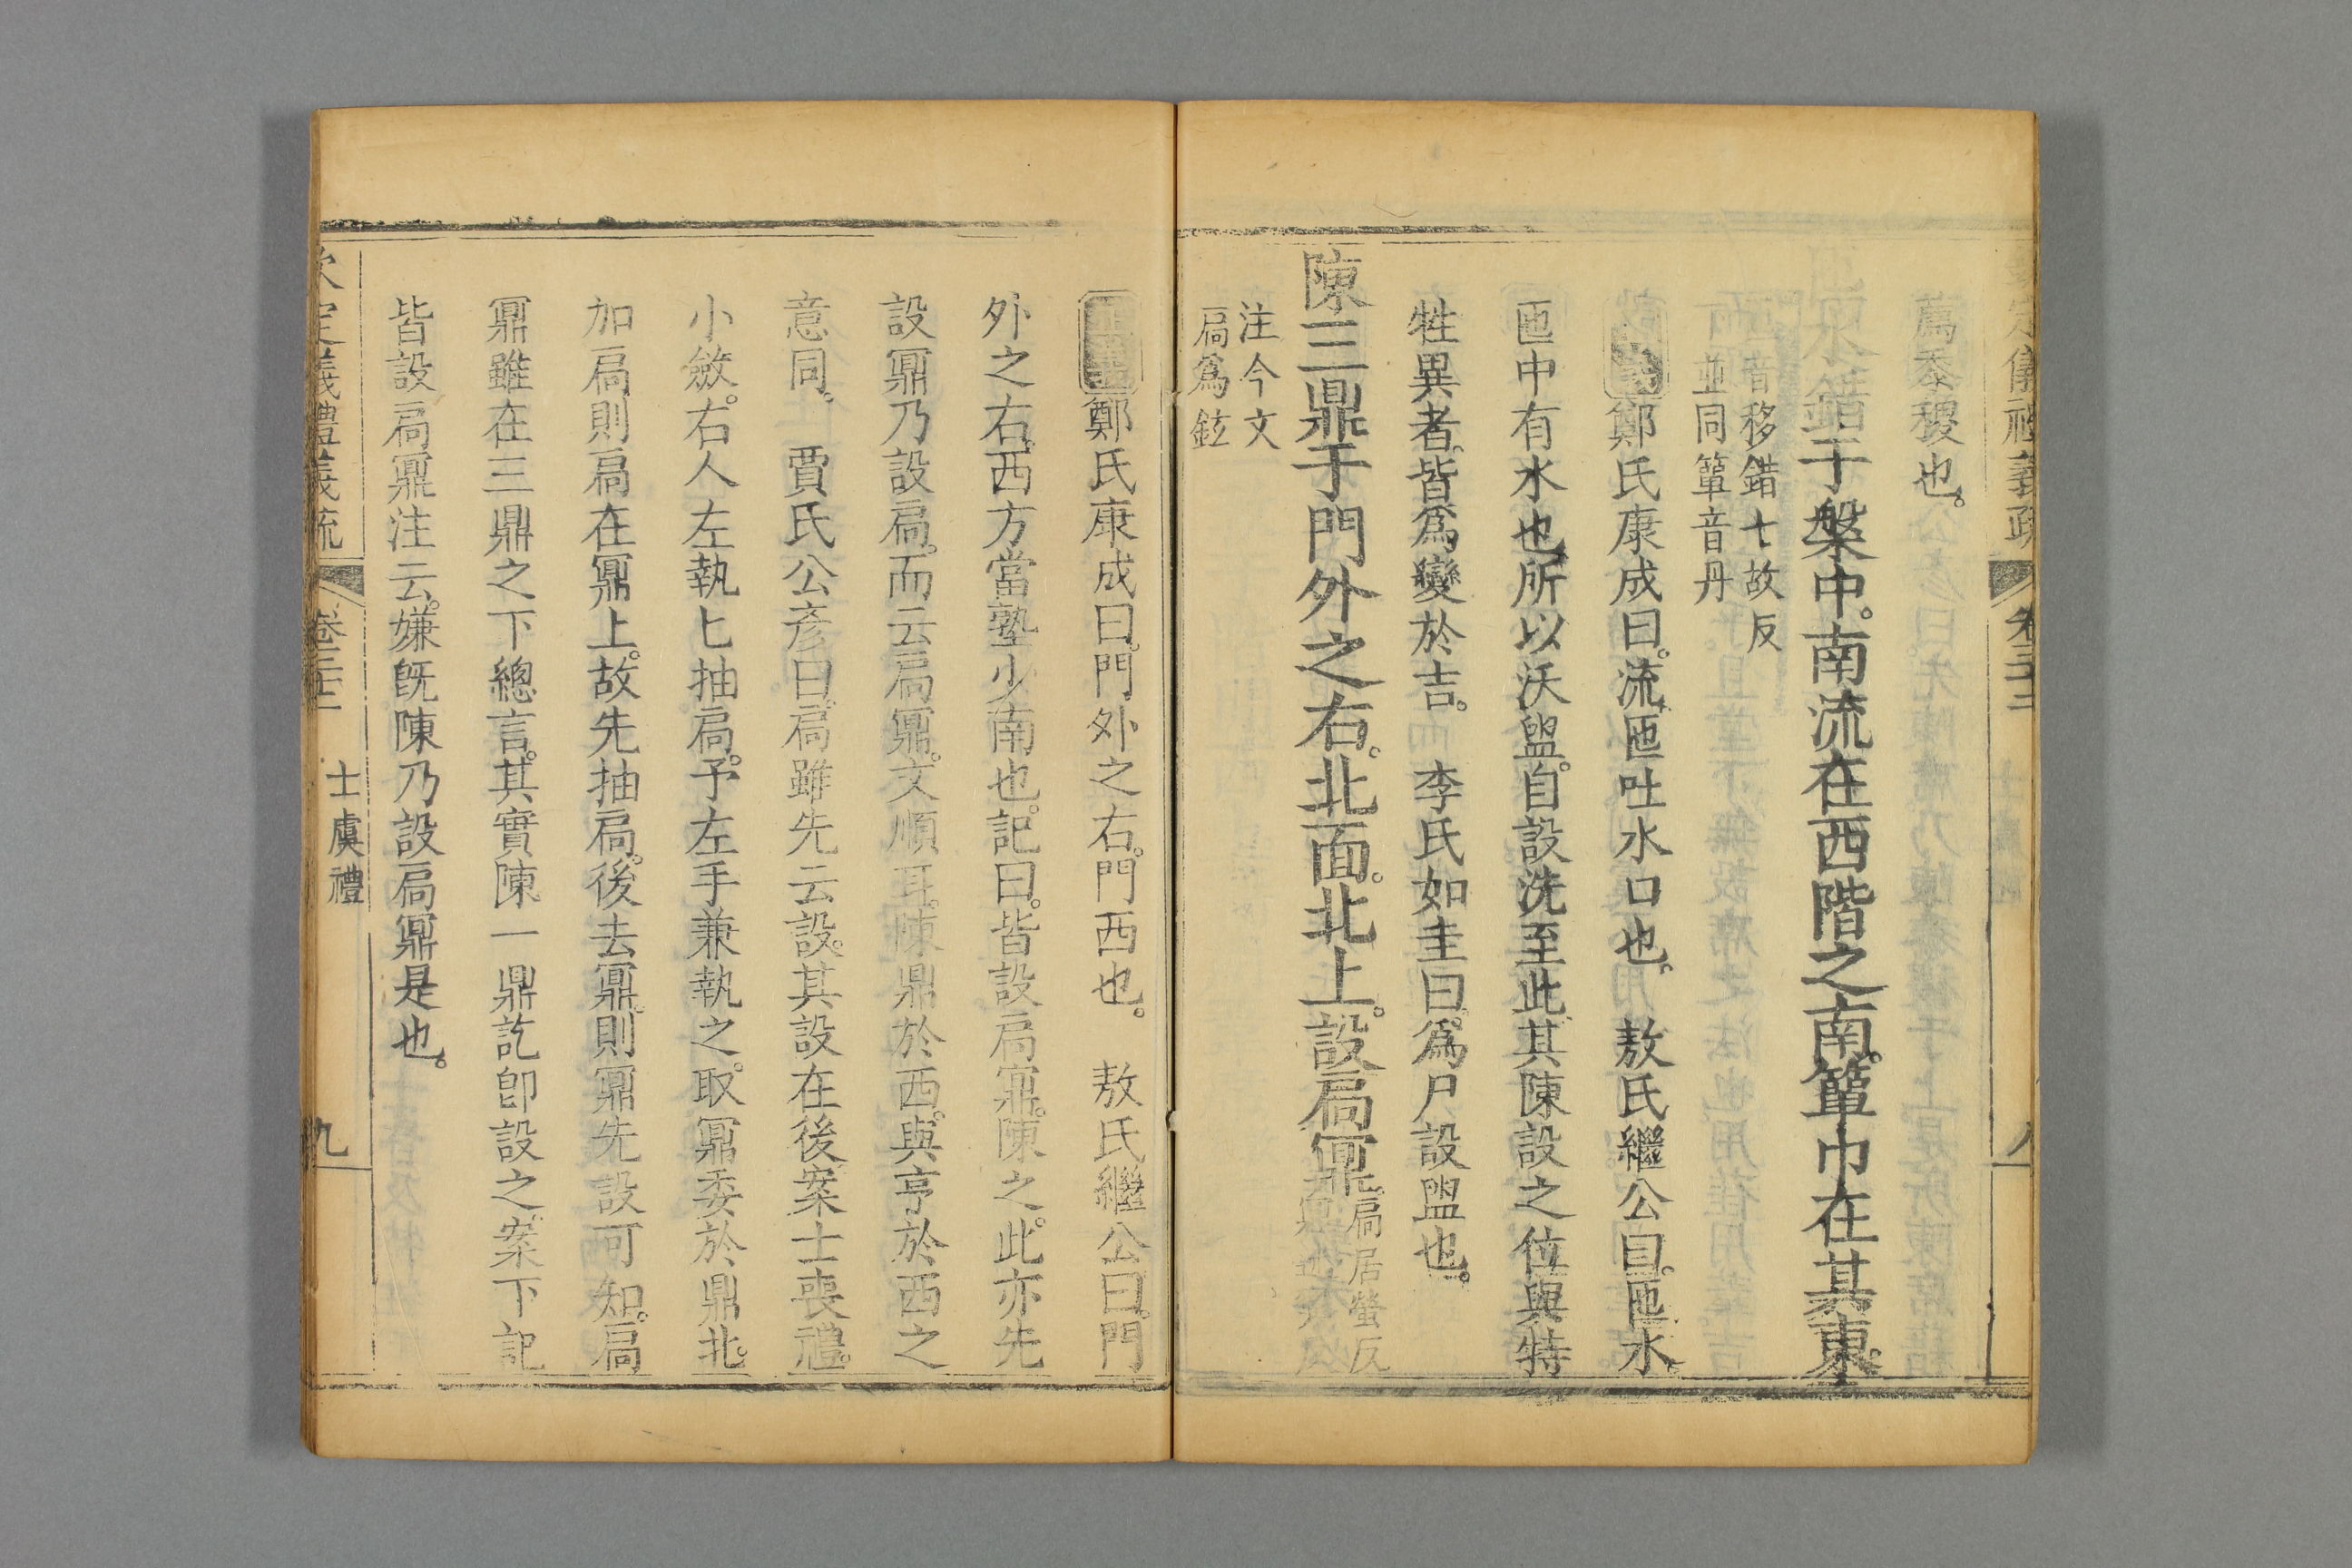 定儀禮義疏 卷三十三 八
薦黍稷也。
匜水錯于槃中。南流在西階之南。簞巾在其東。
匜音移錯七故反
並同簞音丹
鄭氏康成曰。流。匜吐水口也。 敖氏繼公曰。匜水。
匜中有水也。所以沃盥。自設洗至此。其陳設之位。與特
牲異者。皆爲變於吉。 李氏如圭曰。爲尸設盥也。
陳三鼎于門外之右。北面。北上。設扃鼏。
扃居螢反
注今文
扃爲鉉
鄭氏康成曰。門外之右。門西也。 敖氏繼公曰。門
外之右。西方當塾少南也。記曰。皆設扃鼏。陳之。此亦先
設鼏乃設扃。而云扃鼏。文順耳。陳鼎於西。與亨於西之
意同。 賈氏公彦曰。扃雖先云設。其設在後。案士喪禮。
小斂。右人左執匕抽扃。予左手兼執之。取鼏委於鼎北。
加扃則扃在鼏上。故先抽扃。後去鼏。則鼏先設可知。扃
鼏雖在三鼎之下總言。其實陳一鼎訖卽設之。案下記
皆設扃鼏注云。嫌旣陳乃設扃鼏是也。
欽定義禮義疏 卷三十三 士虞禮 九